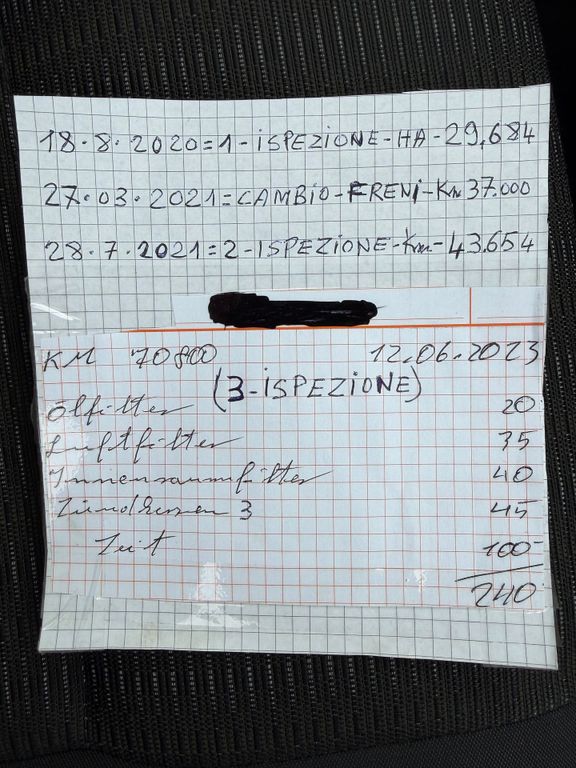 18.8.2020=1-iSPEZiONE-HA-29.684
27.03.2021=CAMBiO-FRENi-Km 37.000
28.7.2021=2-iSPEZiONE-Km-43.654
KM 70800 12.06.2023
(3-iSPEZiONE)
Ölfilter 20
Luftfilter 35
Innenraumfilter 40
Zündkerzen 3 45
Zeit 100-
240